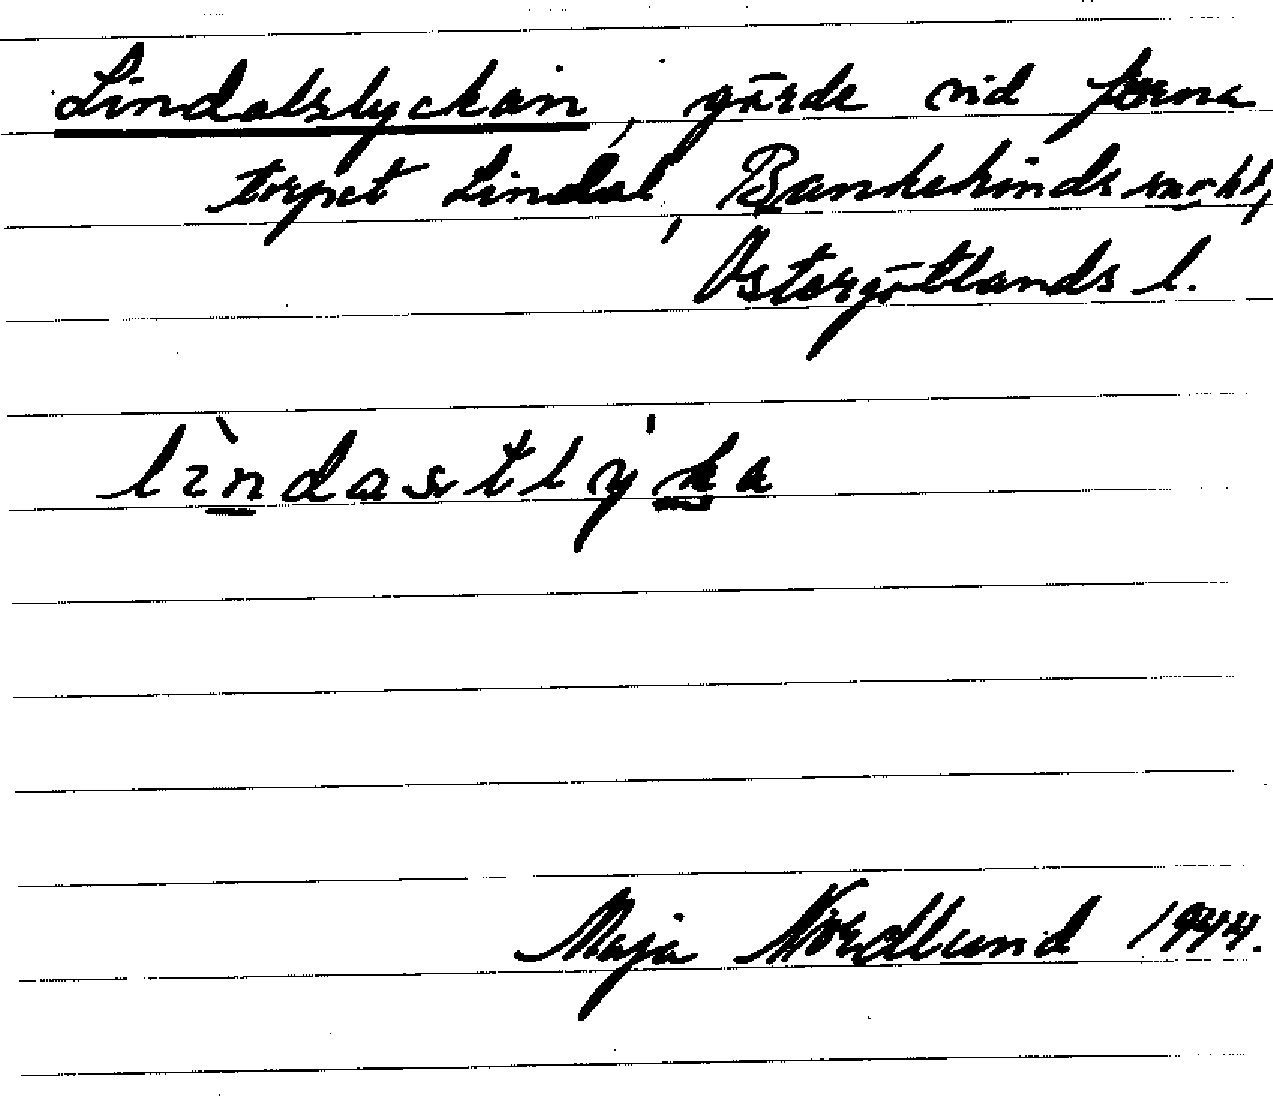 Lindalslyckan, gärde vid forna
torpet Lindal, Bankekinds sn o. hd,
Östergötlands l.
lìndastlýka
Maja Nordlund 1944.